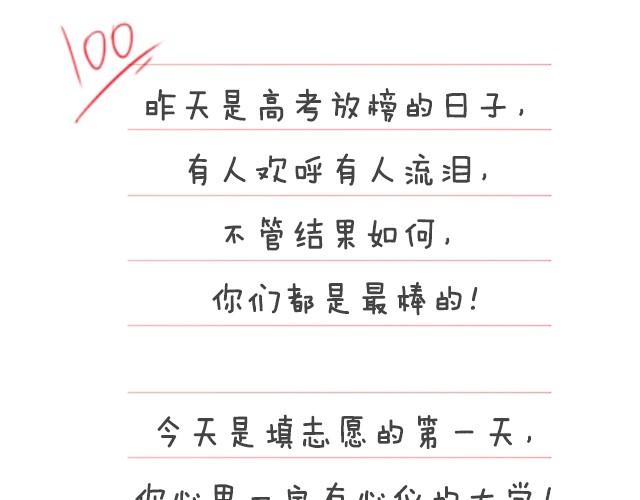 100
昨天是高考放榜的日子，
有人欢呼有人流泪，
不管结果如何，
你们都是最棒的！
今天是填志愿的第一天，
你心里一定有心仪的大学！